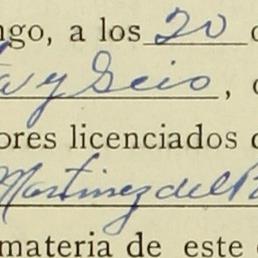 ngo, a los 20
a y Seis,
ores licenciados
Martinez del
materia de este